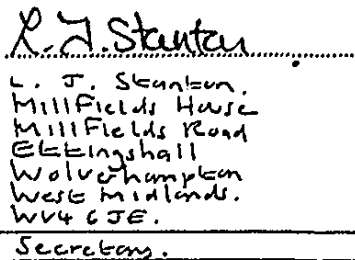 L. J. Stanton
L. J. Stanton.
Millfields House
Millfields Road
Ettingshall
Wolverhampton
West Midlands.
WV4 6JE.
Secretary.